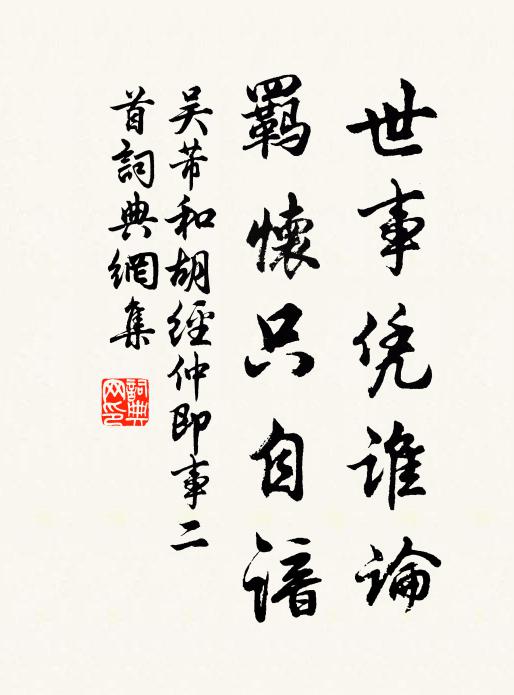 世事凭谁論
羈懷只自谙
吴芾和胡經仲即事二
首詞典網集
詞典
网印